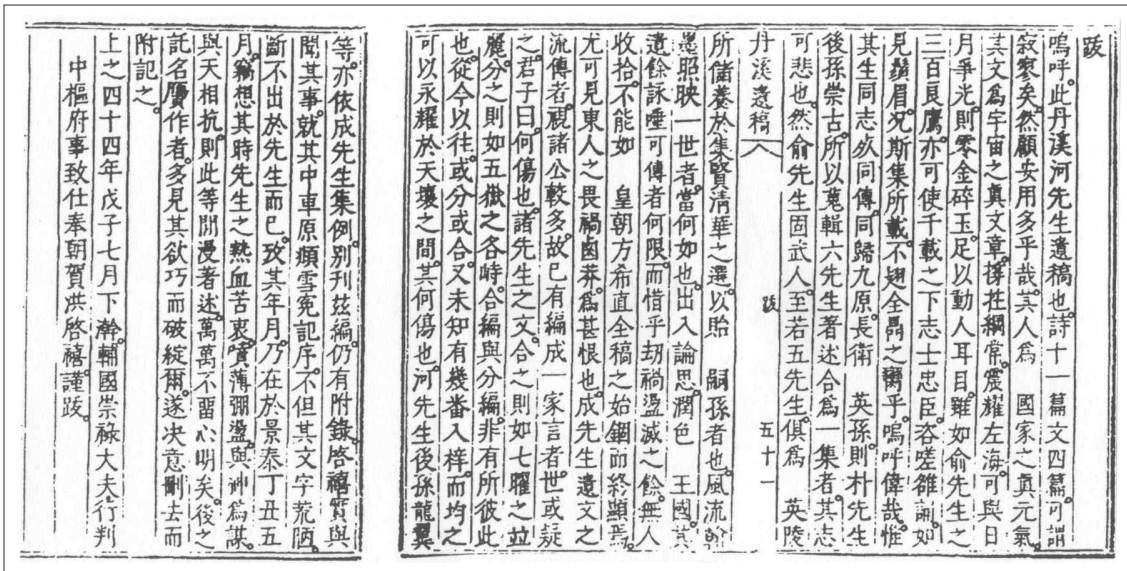 跋
嗚呼。此丹溪河先生遺稿也。詩十一篇文四篇。可謂
寂寥矣。然顧安用多乎哉。其人爲　國家之眞元氣。
其文爲宇宙之眞文章。撐拄綱常。震耀左海。可與日
月爭光。則零金碎玉。足以動人耳目。雖如俞先生之
三百良鷹。亦可使千載之下志士忠臣。咨嗟雒誦。如
見鬚眉。況斯集所載。不翅全鼎之臠乎。嗚呼偉哉。惟
其生同志。死同傳。同歸九原。長衛　英孫。則朴先生
後孫崇古。所以蒐輯六先生著述。合爲一集者。其志
可悲也。然俞先生固武人。至若五先生。俱爲　英陵
丹溪遺稿　跋　五十一
所儲養於集賢淸華之選。以貽　嗣孫者也。風流翰
墨。照映一世者。當何如也。出入論思。潤色　王國。其
遺餘詠唾可傳者何限。而惜乎劫禍盪滅之餘。無人
收拾。不能如　皇朝方希直全稿之始錮而終顯焉。
尤可見東人之畏禍鹵莽。爲甚恨也。成先生遺文之
流傳者。視諸公較多。故已有編成一家言者。世或疑
之。君子曰。何傷也。諸先生之文。合之則如七曜之並
麗。分之則如五嶽之各峙。合編與分編。非有所彼此
也。從今以往。或分或合。又未知有幾番入梓。而均之
可以永耀於天壤之間。其何傷也。河先生後孫龍翼
等。亦依成先生集例。別刊玆編。仍有附錄。啓禧實與
聞其事。就其中車原頫雪冤記序。不但其文字荒陋。
斷不出於先生而已。攷其年月。乃在於景泰丁丑五
月。竊想其時先生之熱血苦衷。噴薄彌盪。與神爲謀。
與天相抗。則此等閒漫著述。萬萬不留心明矣。後之
託名贋作者。多見其欲巧而破綻爾。遂決意刪去而
附記之。
上之四十四年戊子七月下澣。輔國崇祿大夫行判
中樞府事致仕奉朝賀洪啓禧謹跋。